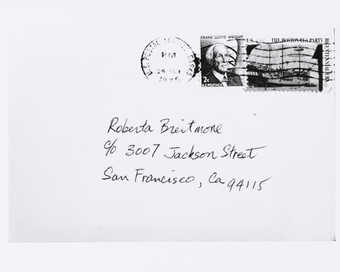 PM
FRANK LLOYD WRIGHT
2c
THE BOSTON TEA PARTY
Roberta Breitmore
c/o 3007 Jackson Street
San Francisco, Ca 94115